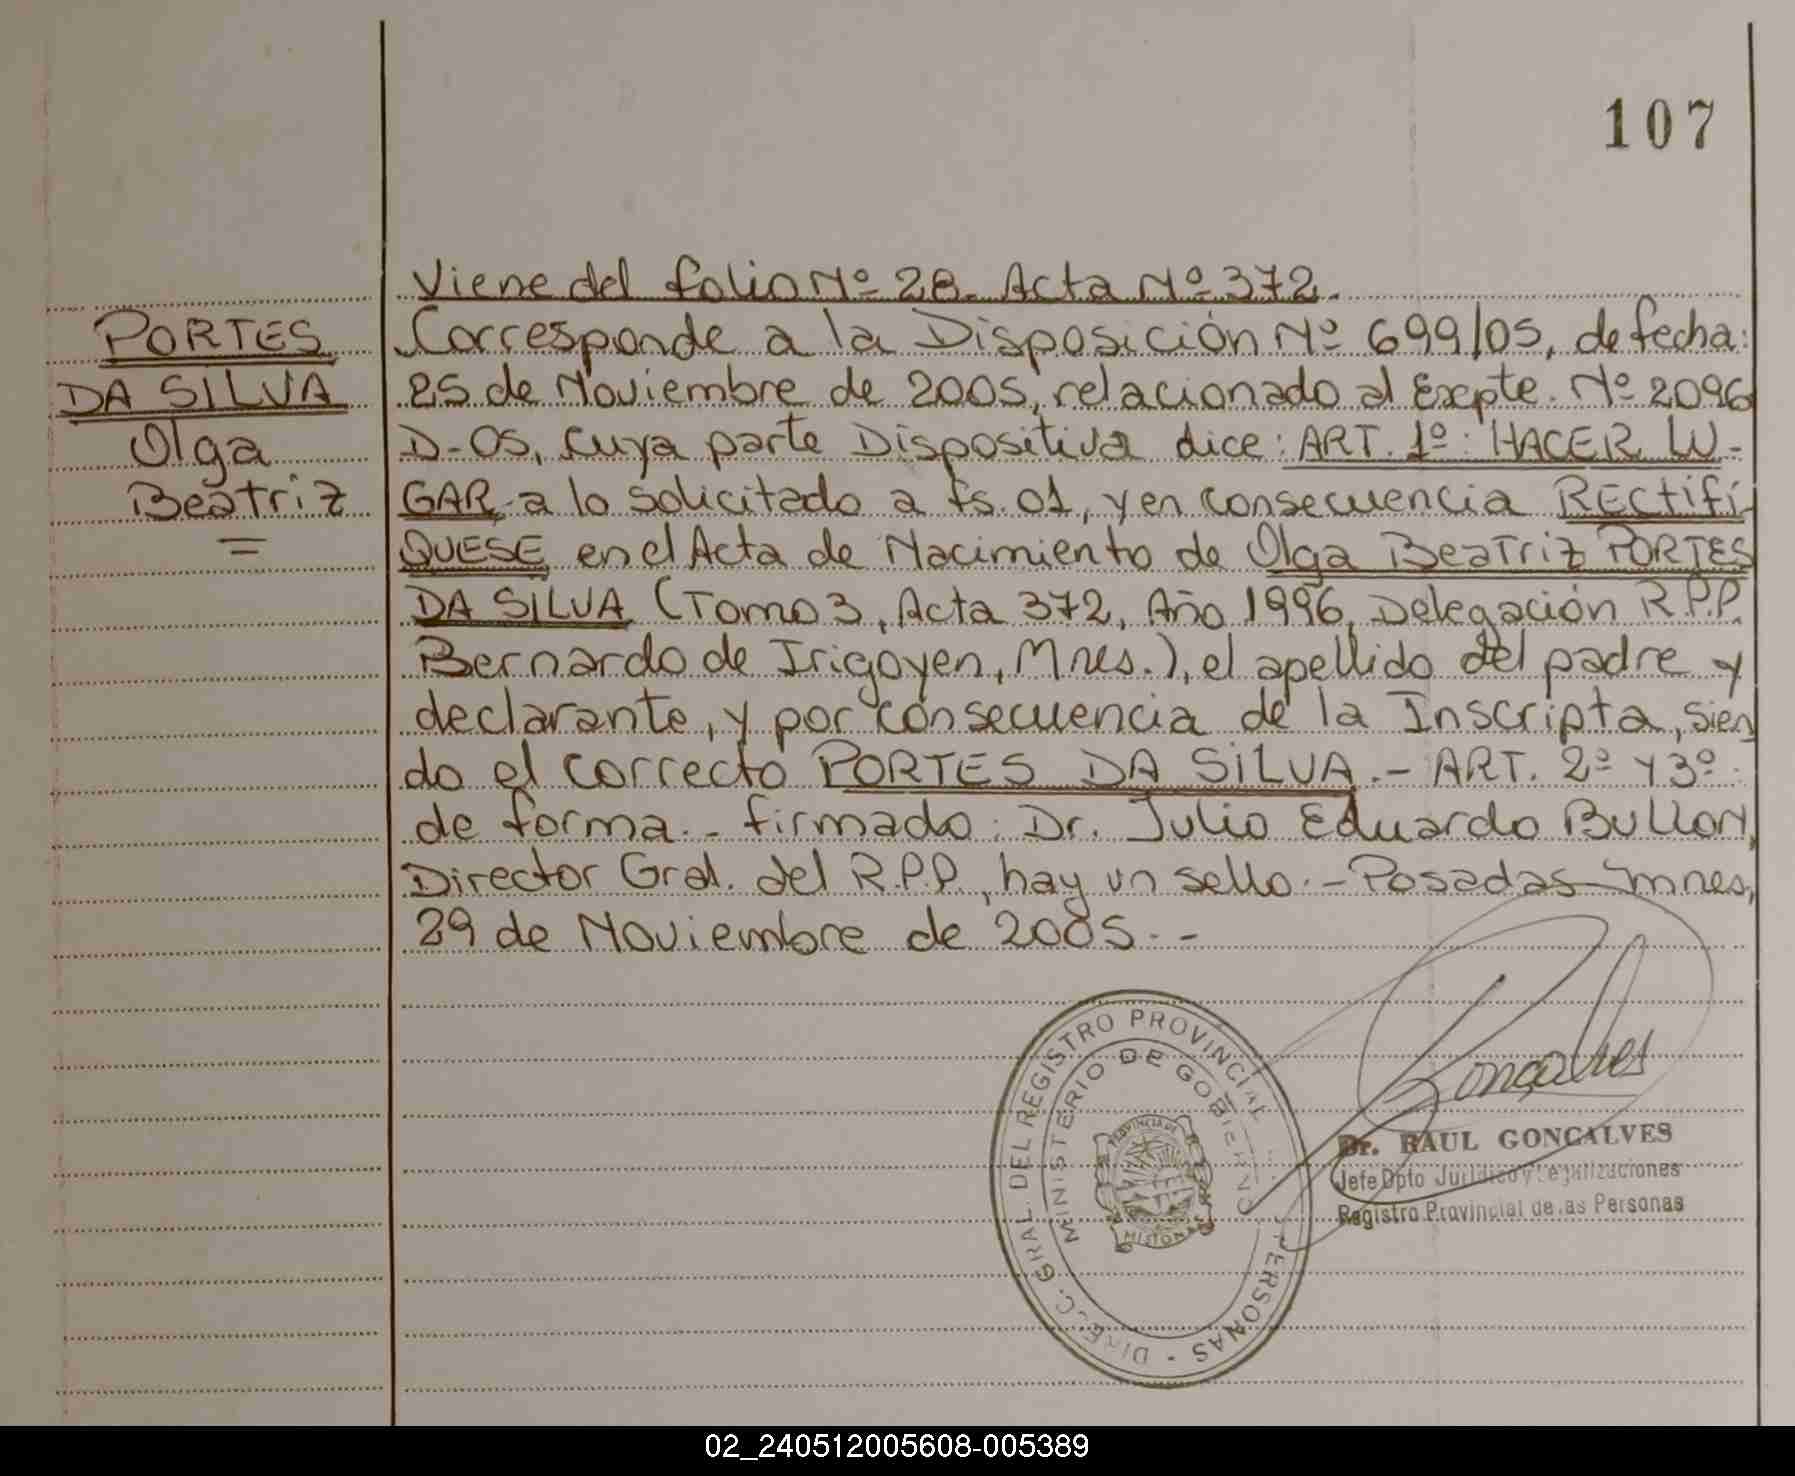 107
Viene del folio Nº 28. Acta Nº 372.
PORTES
DA SILVA
Olga
Beatriz
=
Corresponde a la Disposición Nº 699/05, de fecha:
25 de Noviembre de 2005, relacionado al Expte. Nº 2096
D-05, cuya parte Dispositiva dice: ART. 1º: HACER LU-
GAR, a lo solicitado a fs. 01, y en consecuencia RECtifí-
QUESE en el Acta de Nacimiento de Olga Beatriz PORTES
DA SILVA (Tomo 3, Acta 372, Año 1996, Delegación R.P.P.
Bernardo de Irigoyen, Mnes.), el apellido del padre y
declarante, y por consecuencia de la Inscripta, sien
do el correcto PORTES DA SILVA.- ART. 2º y 3º:
de forma.- firmado: Dr. Julio Eduardo Bullon,
Director Gral. del R.P.P., hay un sello.- Posadas-Mnes,
29 de Noviembre de 2005.-
DIRECC. GRAL. DEL REGISTRO PROVINCIAL PERSONAS -
MINISTERIO DE GOBIERNO
PROVINCIA DE
MISIONES
Gonçalves
Dr. RAUL GONCALVES
Jefe Dpto Jurídico y Legalizaciones
Registro Provincial de las Personas
02_240512005608-005389